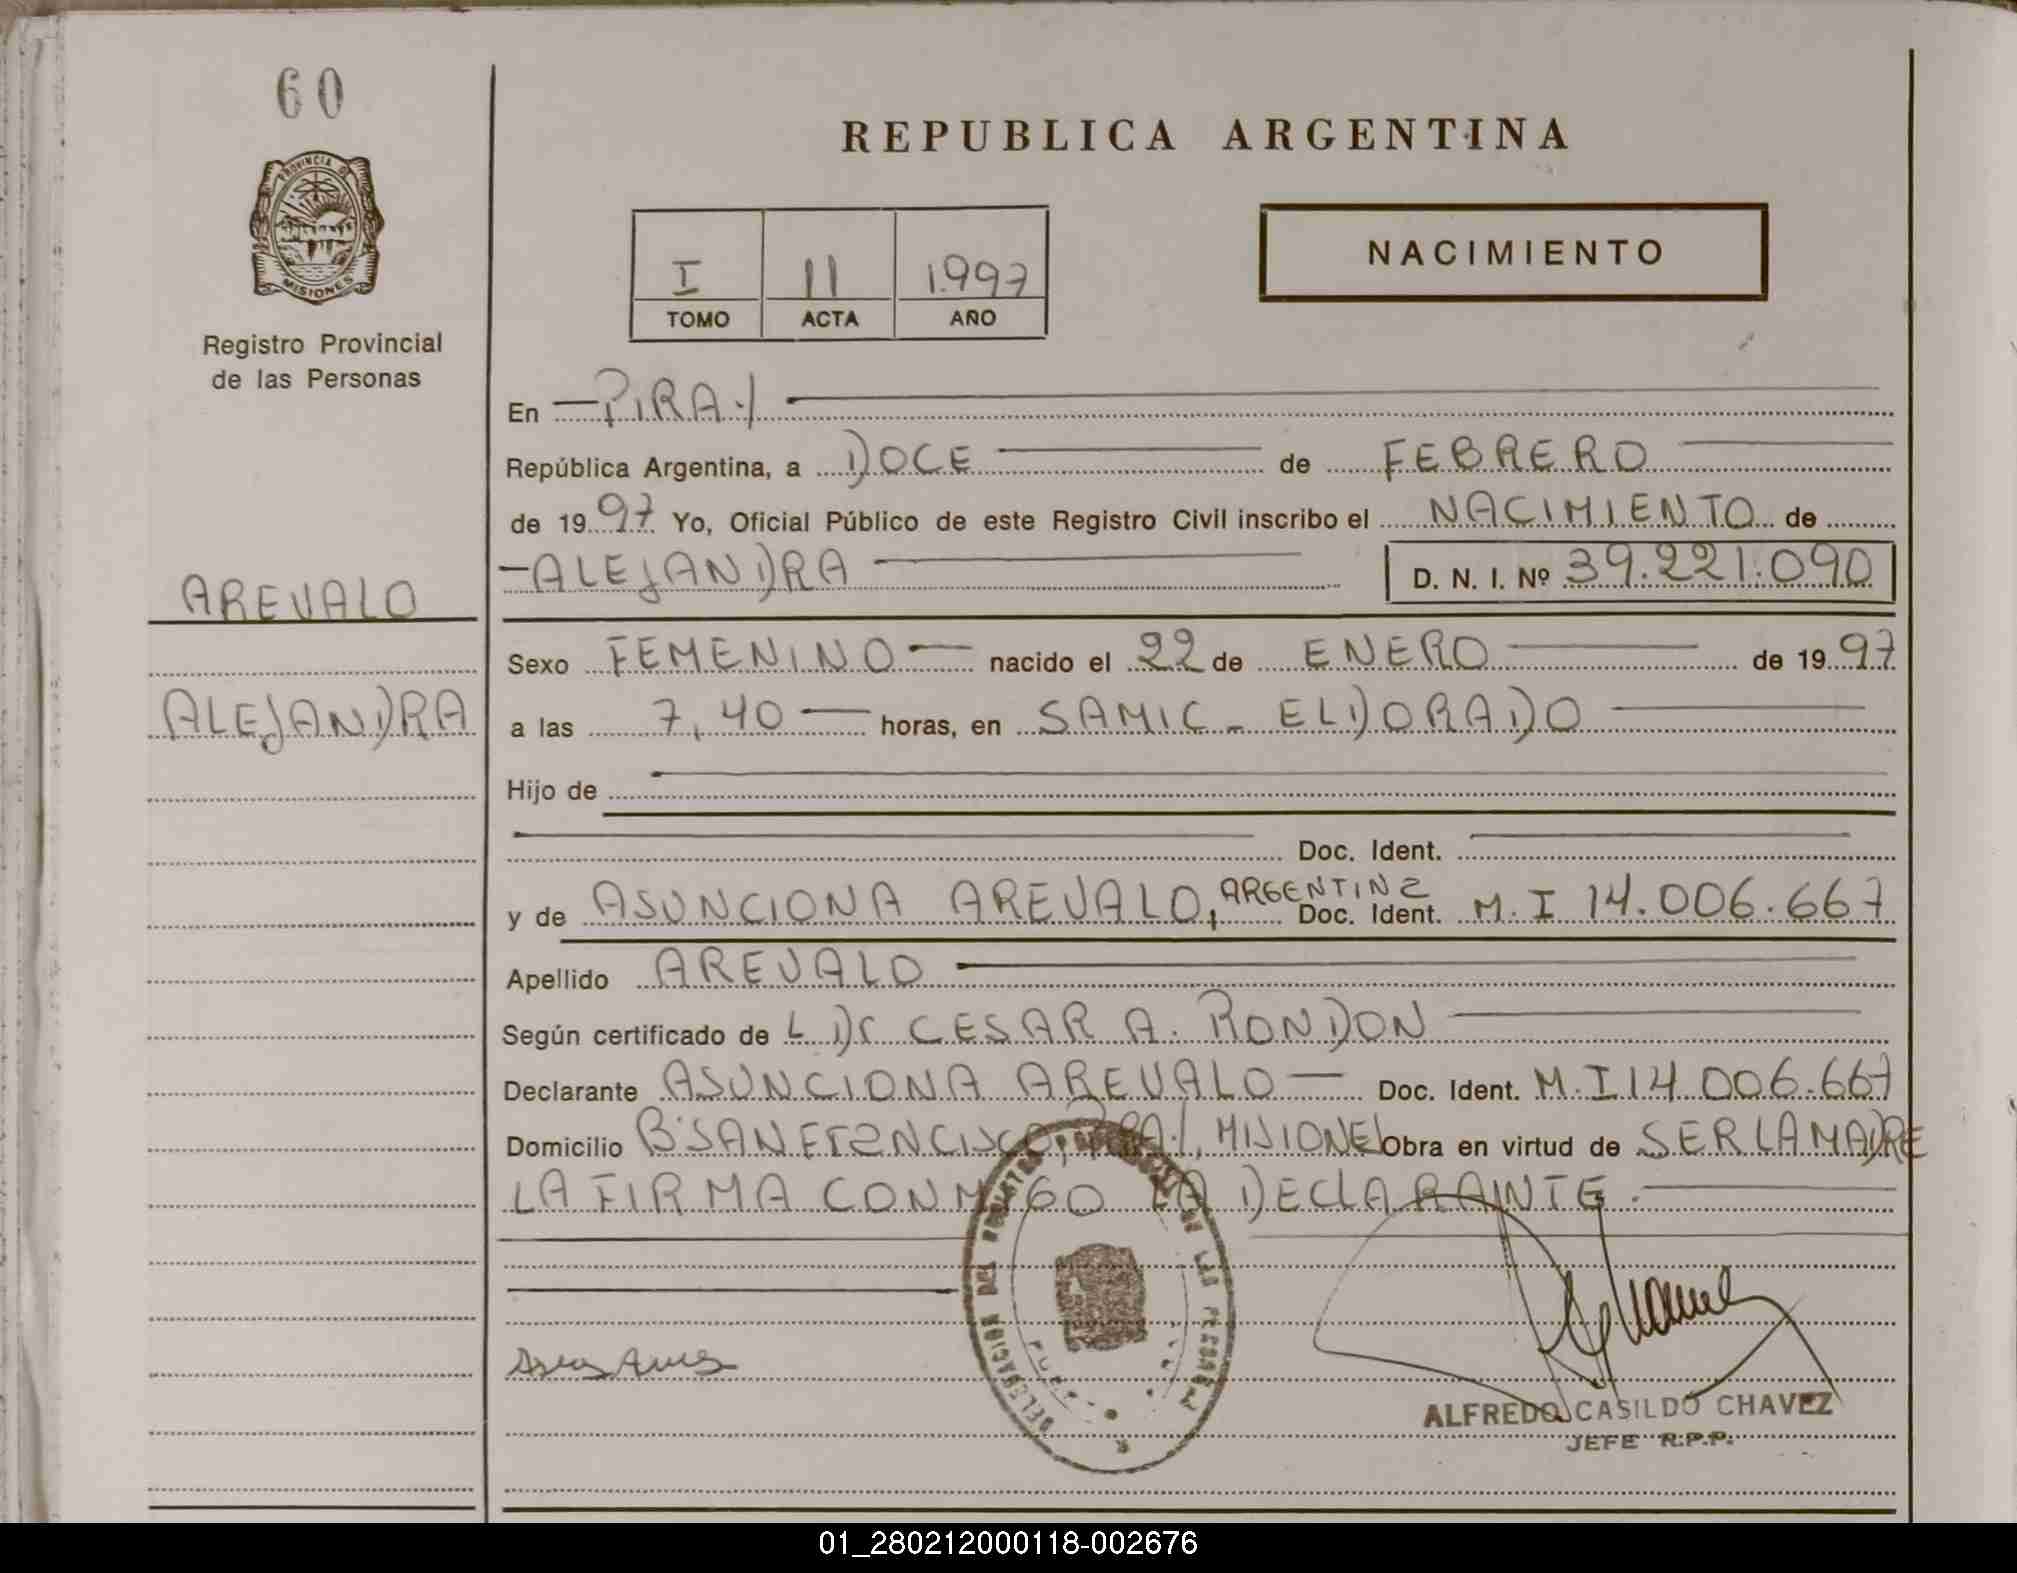 60
PROVINCIA DE
MISIONES
Registro Provincial
de las Personas
REPUBLICA ARGENTINA
I 11 1.997
TOMO ACTA AÑO
NACIMIENTO
En PIRAY
República Argentina, a DOCE de FEBRERO
de 1997 Yo, Oficial Público de este Registro Civil inscribo el NACIMIENTO de
ALEJANDRA D. N. I. Nº 39.221.090
AREVALO
ALEJANDRA
Sexo FEMENINO nacido el 22 de ENERO de 1997
a las 7,40 horas, en SAMIC - ELDORADO
Hijo de
Doc. Ident.
y de ASUNCIONA AREVALO, ARGENTINA Doc. Ident. M.I 14.006.667
Apellido AREVALO
Según certificado de L DR CESAR A. RONDON
Declarante ASUNCIONA AREVALO Doc. Ident. M.I 14.006.667
Domicilio Bº SAN FRANCISCO, PIRAY, MISIONES Obra en virtud de SER LA MADRE
LA FIRMA CONMIGO LA DECLARANTE.
DELEGACION DEL REGISTRO DE LAS PERSONAS
ALFREDO CASILDO CHAVEZ
JEFE R.P.P.
01_280212000118-002676